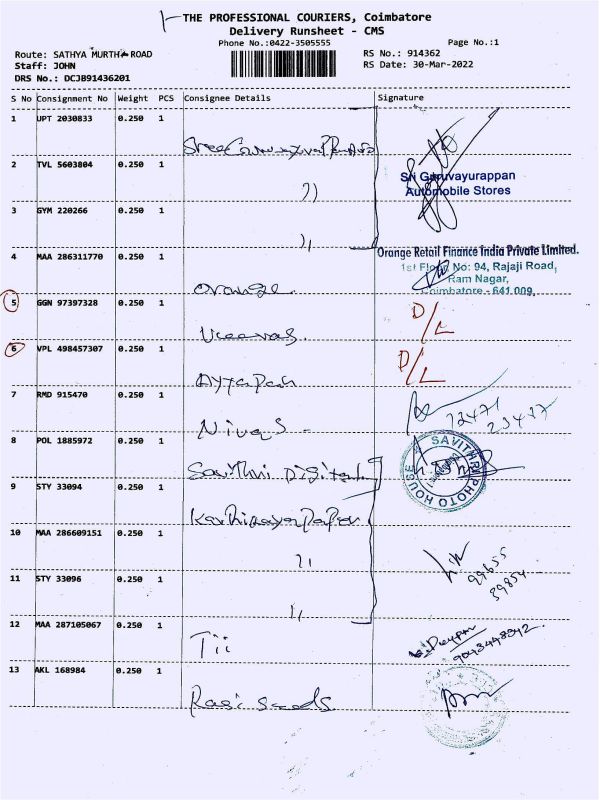 THE PROFESSIONAL COURIERS, Coimbatore
Delivery Runsheet - CMS
Phone No.:0422-3505555
Page No.:1
Route: SATHYA MURTHI ROAD
Staff: JOHN
DRS No.: DCJB91436201
RS No.: 914362
RS Date: 30-Mar-2022
S No Consignment No Weight PCS Consignee Details Signature
1 UPT 2030833 0.250 1
Sri Guruvayurappan
Automobile Stores
2 TVL 5603804 0.250 1 ))
3 GYM 220266 0.250 1 ))
4 MAA 286311770 0.250 1 Orange
Orange Retail Finance India Private Limited.
1st Floor No: 94, Rajaji Road,
Ram Nagar,
Coimbatore - 641 009.
5 GGN 97397328 0.250 1 D/L
6 VPL 498457307 0.250 1 Ayyapan D/L
7 RMD 915470 0.250 1 Nivas -
8 POL 1885972 0.250 1 Savithri Digital
SAVITHRI PHOTO HOUSE
9 STY 33094 0.250 1
10 MAA 286609151 0.250 1 ))
99655
39854
11 STY 33096 0.250 1 ))
12 MAA 287105067 0.250 1 Tii
13 AKL 168984 0.250 1 Rasi seeds